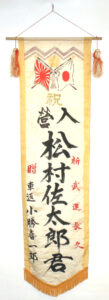 祝
入営
祈武運長久
松村佐太郎君
贈
車返 小勝喜一郎